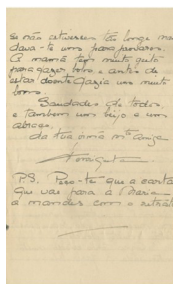 se não estivessem tão longe man
dava-te um para provares.
A mamã tem muito geito
para fazer bolos e antes de
estar doente fazia uns muito
bons.
Saudades de todos
e tambem um beijo e um
abraço.
da tua irmã mto amiga
P.S. Peço-te que a carta
que vai para a Maria
a mandes com o retrato